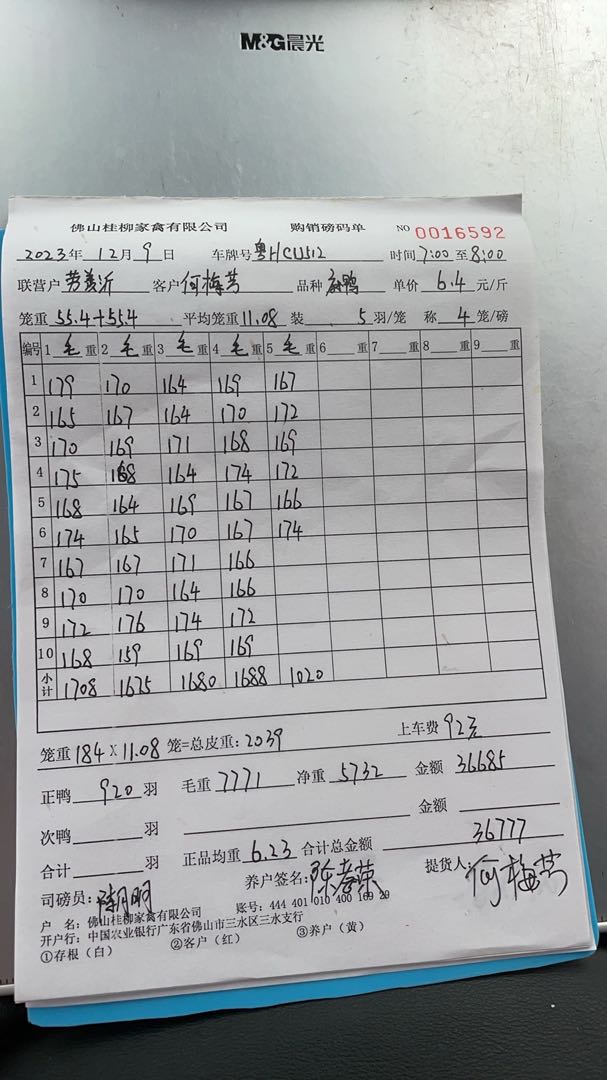 M&G晨光
佛山桂柳家禽有限公司 购销磅码单 NO 0016592
2023年 12月 9日 车牌号 粤HCU512 时间 7:00 至 8:00
联营户 劳美沂 客户 何梅芳 品种 麻鸭 单价 6.4 元/斤
笼重 55.4+55.4 平均笼重 11.08 装 5 羽/笼 称 4 笼/磅
编号 1 毛 重 2 毛 重 3 毛 重 4 毛 重 5 毛 重 6 重 7 重 8 重 9 重
1 179 170 164 169 167
2 165 167 164 170 172
3 170 169 171 168 169
4 175 168 164 174 172
5 168 164 169 167 166
6 174 165 170 167 174
7 167 167 171 166
8 170 170 164 166
9 172 176 174 172
10 168 159 169 169
小计 1708 1675 1680 1688 1020
笼重 184 X 11.08 笼=总皮重: 2039 上车费 92元
正鸭 920 羽 毛重 7771 净重 5732 金额 36685
次鸭 羽 金额
合计 羽 正品均重 6.23 合计总金额 36777
司磅员: 养户签名: 提货人: 何梅芳
户 名: 佛山桂柳家禽有限公司 账号: 444 401 010 400 169 29
开户行: 中国农业银行广东省佛山市三水区三水支行
①存根（白） ②客户（红） ③养户（黄）